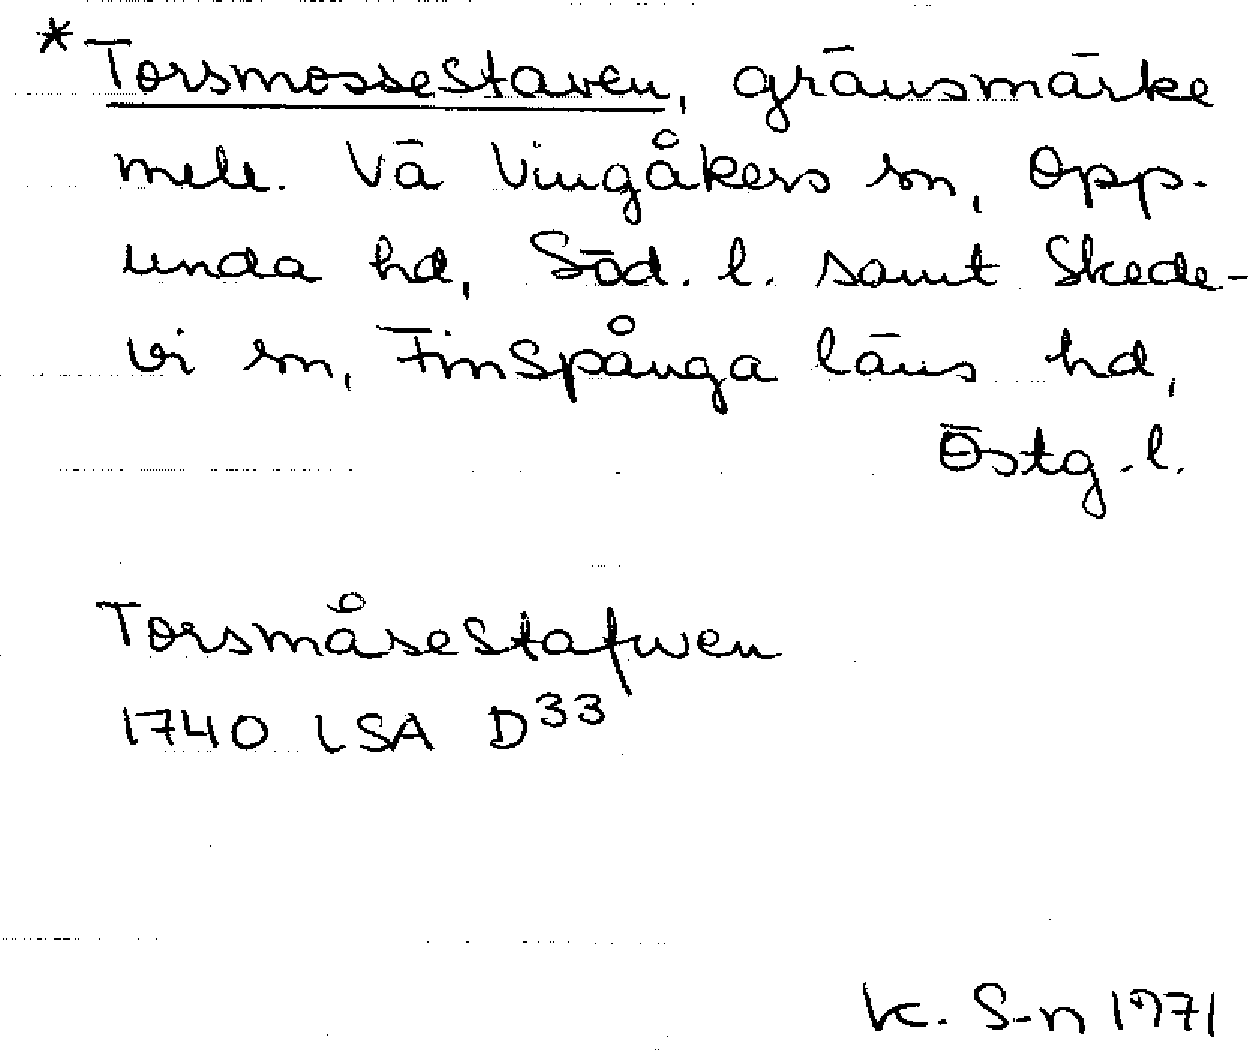 * Torsmossestaven, gränsmärke
mell. Vä Vingåkers sn, Opp-
unda hd, Söd. l. samt Skede-
vi sn, Finspånga läns hd,
Östg. l.
Torsmåsestafwen
1740 LSA D33
K. S-n 1971